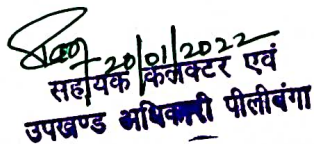 20/01/2022
सहायक कलक्टर एवं
उपखण्ड अधिकारी पीलीबंगा